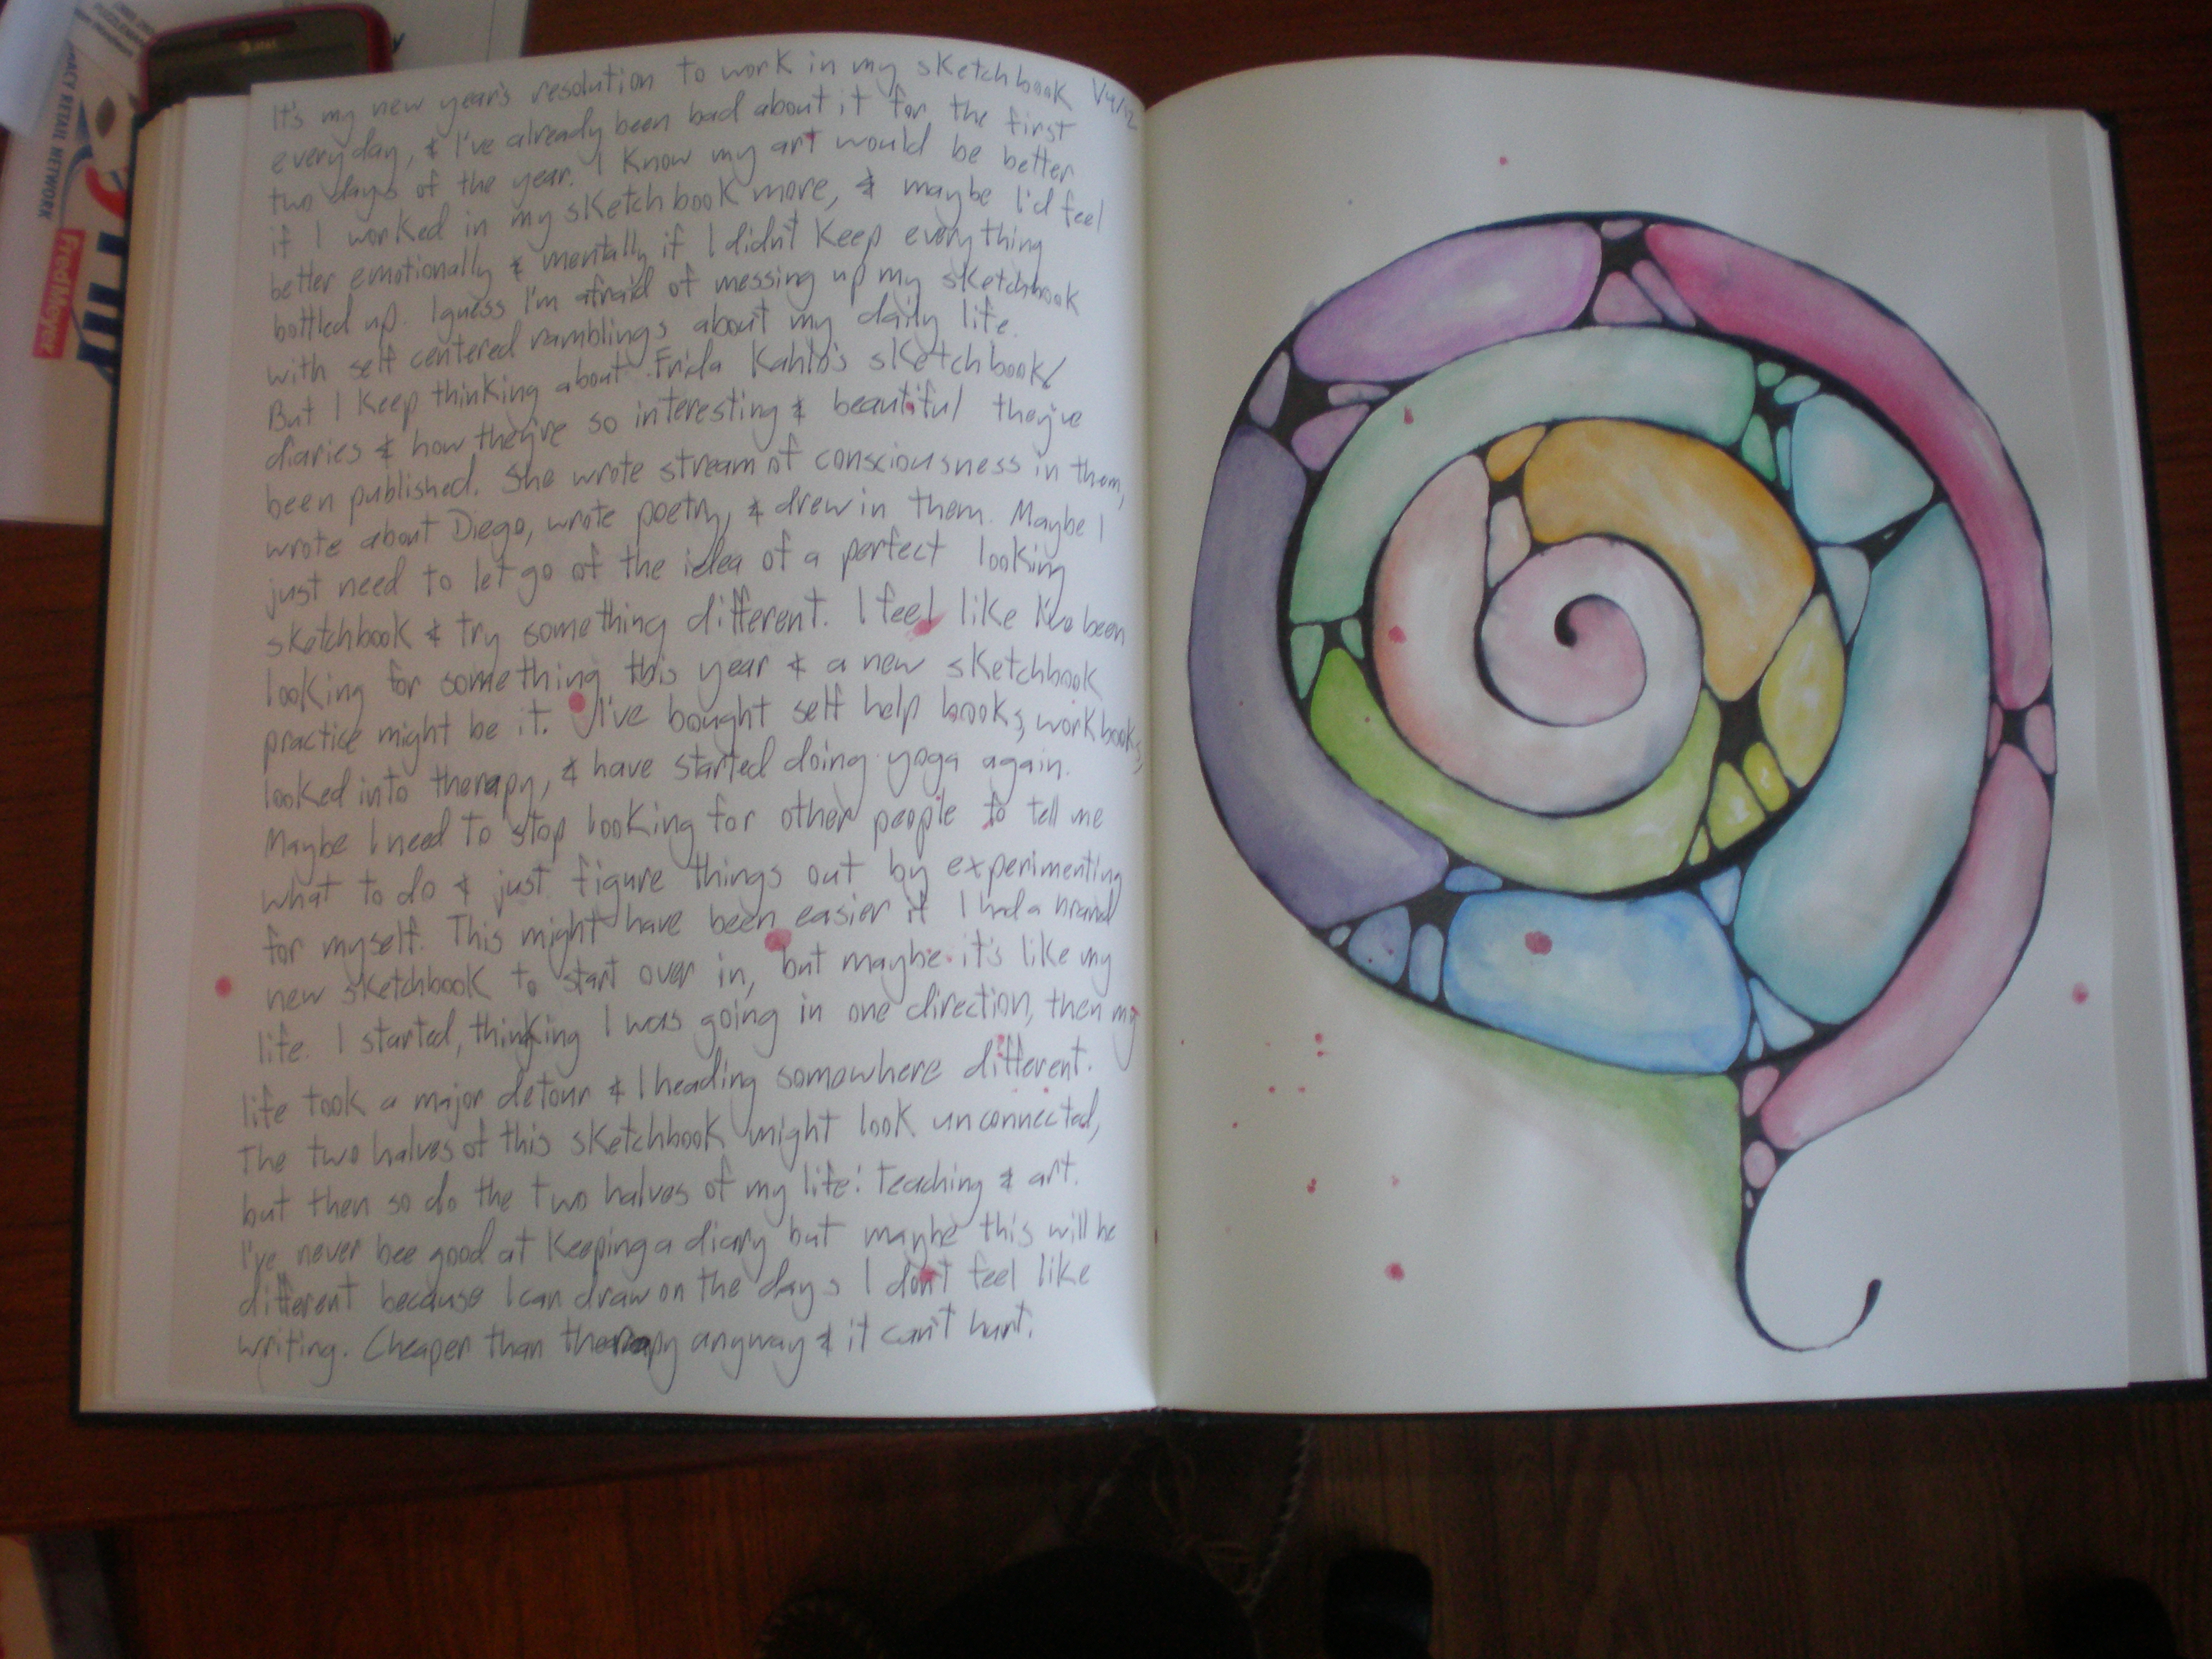 It's my new year's resolution to work in my sketchbook 1/4/12
everyday, & I've already been bad about it for the first
two days of the year. I know my art would be better
if I worked in my sketchbook more, & maybe I'd feel
better emotionally & mentally if I didn't keep everything
bottled up. I guess I'm afraid of messing up my sketchbook
with self centered ramblings about my daily life.
But I keep thinking about Frida Kahlo's sketchbook/
diaries & how they're so interesting & beautiful they've
been published. She wrote stream of consciousness in them,
wrote about Diego, wrote poetry, & drew in them. Maybe I
just need to let go of the idea of a perfect looking
sketchbook & try something different. I feel like I've been
looking for something this year & a new sketchbook
practice might be it. I've bought self help books, workbooks,
looked into therapy, & have started doing yoga again.
Maybe I need to stop looking for other people to tell me
what to do & just figure things out by experimenting
for myself. This might have been easier if I had a brand
new sketchbook to start over in, but maybe it's like my
life. I started, thinking I was going in one direction, then my
life took a major detour & I heading somewhere different.
The two halves of this sketchbook might look unconnected,
but then so do the two halves of my life: teaching & art.
I've never bee good at keeping a diary but maybe this will be
different because I can draw on the days I don't feel like
writing. Cheaper than therapy anyway & it can't hurt.
RETAIL NETWORK
Fred Meyer